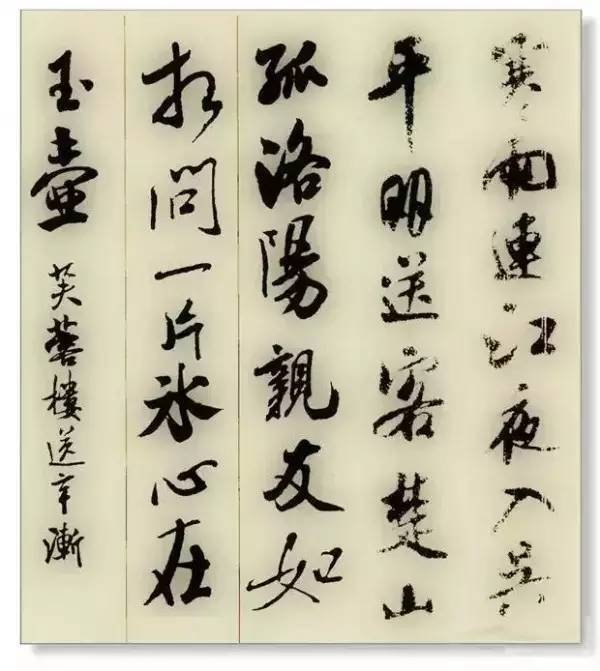 寒雨連江夜入吳
平明送客楚山
孤洛陽親友如
相問一片冰心在
玉壺 芙蓉樓送辛漸